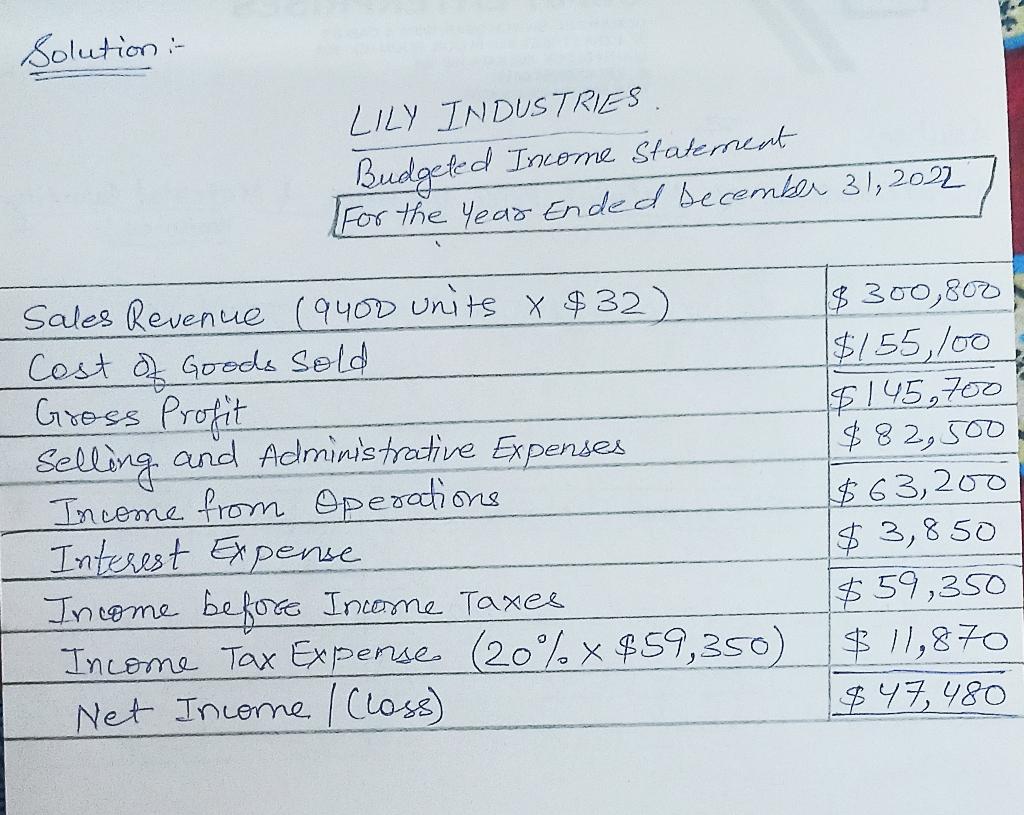 Solution :-
LILY INDUSTRIES.
Budgeted Income Statement
For the Year Ended December 31, 2022
Sales Revenue (9400 units X $32) $ 300,800
Cost of Goods Sold $155,100
Gross Profit $145,700
Selling and Administrative Expenses $ 82,500
Income from Operations $63,200
Interest Expense $ 3,850
Income before Income Taxes $59,350
Income Tax Expense (20% X $59,350) $ 11,870
Net Income / (Loss) $47,480